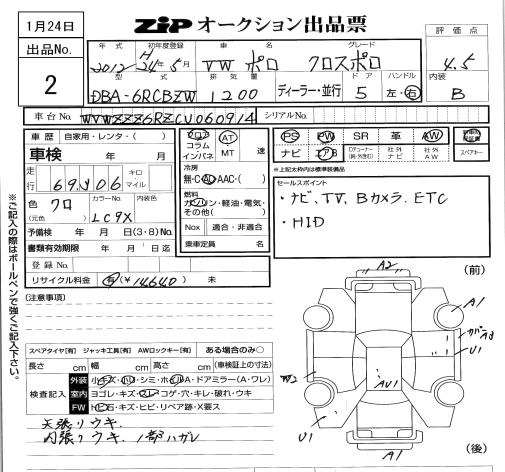 1月24日
ZIP オークション出品票
出品No.
2
評価点
4.5
内装
B
年式 初年度登録 車名 グレード
2012 H24年5月 VW ポロ クロスポロ
型式 排気量 ドア ハンドル
DBA-6RCBZW 1200 ディーラー・並行 5 左・右
車台No. WVWZZZ6RZCU060914 シリアルNo.
車歴 自家用・レンタ・( )
車検 年 月
走行 69,906 キロ マイル
色 クロ カラーNo. LC9X 内装色
(元色)
予備検 年 月 日(3・8)No.
書類有効期限 年 月 日迄
登録No.
リサイクル料金 有(¥14640) 未
フロア コラム インパネ
AT
MT 速
冷房
無・C・AC・AAC・( )
燃料
ガソリン・軽油・電気・
その他( )
Nox 適合・非適合
乗車定員 名
PS PW SR 革 AW
ナビ エアB 社外ナビ 社外AW スペアキー
※上記太枠内は標準装備品
セールスポイント
・ナビ、TV、Bカメラ、ETC
・HID
(注意事項)
スペアタイヤ[有] ジャッキ工具[有] AWロックキー[有] ある場合のみ○
長さ cm 幅 cm 高さ cm (車検証上の寸法)
検査記入
外装 小キズ・凹・シミ・ホイルA・ドアミラー(A・ワレ)
室内 ヨゴレ・キズ・スレ・コゲ・穴・キレ・破れ・ウキ
FW トビ石・キズ・ヒビ・リペア跡・X要ス
天張りウキ.
内張りウキ. 1部ハガレ
※ご記入の際はボールペンで強くご記入下さい。
(前)
A2
A1
カバーA3
U1
AU1
W2
U1
A1
(後)